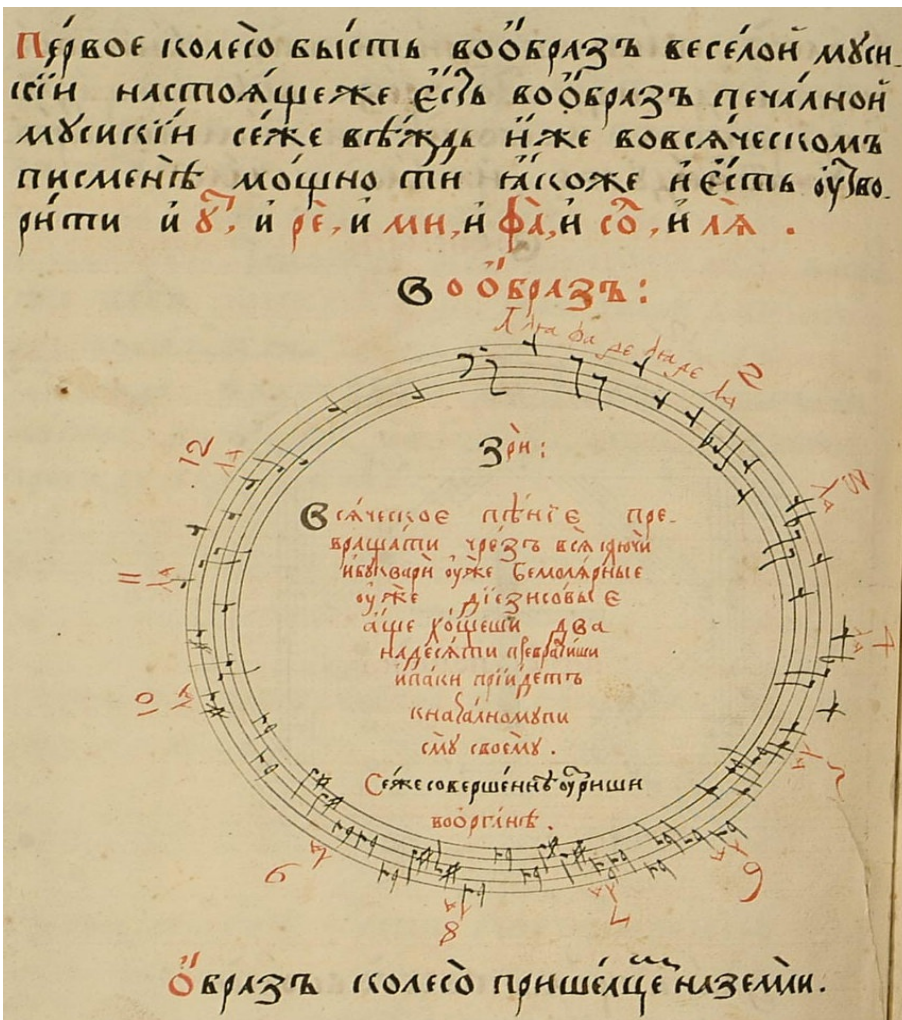 Пе́рвое колесо̀ бы́сть воо́бразъ весе́лой муси-
кі́и настоя́щеже є҆́сть воо́бразъ печа́лной
мусикі́и се́же всѣ́ждь и҆́же вовся́ческомъ
писменѣ̀ мо́щно ти ꙗ҆́коже и҆ є҆́сть ѹ҆тво-
ри́ти и҆ у҆т, и҆ рѐ, и҆ ми, и҆ фа̀, и҆ со̀л, и҆ ля̀.
Воо́бразъ:
ля ля фа де ля де ля
2
ля 3
12 ля
11 ля
4 ля
10 ля
5
9 ля
6 ля
8 ля
7 ля
Зрѝ:
Вся́ческое пѣ́нїе пре-
враща́ти чре́зъ вся̀ ключѝ
и҆буквари̑ ѹ҆́же бемоля́рные
ѹ҆́же дїе́зисовые
а҆́ще хо́щеши два
на́десяти преврати́ши
и҆па́ки прїи́детъ
кнача́лномупи
смꙋ̀ своемꙋ̀.
Се́же соверше́ннѣ ѹ҆́зриши
воѻ҆рга́нѣ.
О҆́бразъ колесо̀ прише́лще на́земли.